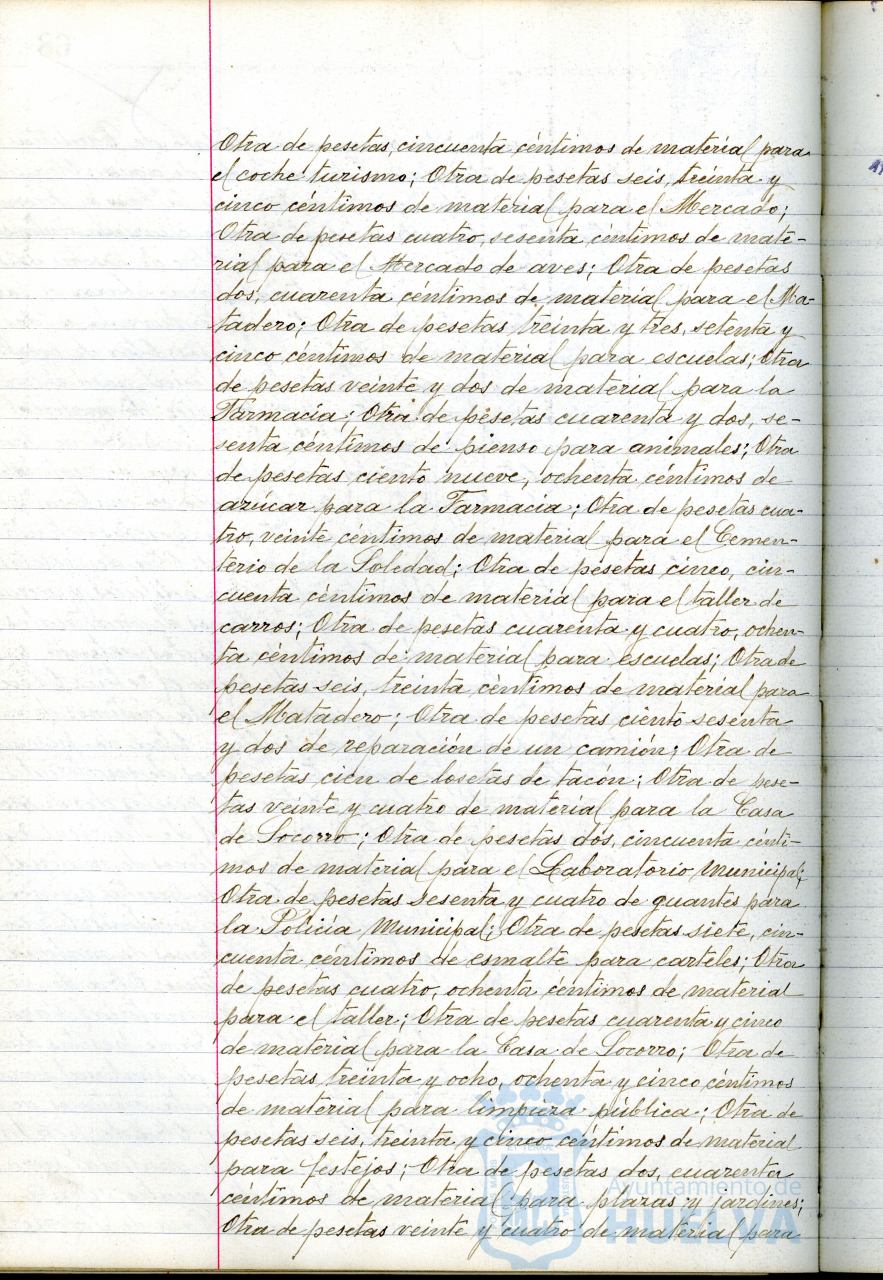 Otra de pesetas, cincuenta céntimos de material para
el coche turismo; Otra de pesetas seis, treinta y
cinco céntimos de material para el Mercado;
Otra de pesetas cuatro, sesenta céntimos de mate-
rial para el Mercado de aves; Otra de pesetas
dos, cuarenta céntimos de material para el Ma-
tadero; Otra de pesetas treinta y tres, setenta y
cinco céntimos de material para escuelas; Otra
de pesetas veinte y dos de material para la
Farmacia; Otra de pesetas cuarenta y dos, se-
senta céntimos de pienso para animales; Otra
de pesetas ciento nueve, ochenta céntimos de
azúcar para la Farmacia; Otra de pesetas cua-
tro, veinte céntimos de material para el Cemen-
terio de la Soledad; Otra de pesetas cinco, cin-
cuenta céntimos de material para el taller de
carros; Otra de pesetas cuarenta y cuatro, ochen-
ta céntimos de material para escuelas; Otra de
pesetas seis, treinta céntimos de material para
el Matadero; Otra de pesetas ciento sesenta
y dos de reparación de un camión; Otra de
pesetas cien de losetas de tacón; Otra de pese-
tas veinte y cuatro de material para la Casa
de Socorro; Otra de pesetas dos, cincuenta cénti-
mos de material para el Laboratorio Municipal;
Otra de pesetas sesenta y cuatro de guantes para
la Policía Municipal; Otra de pesetas siete, cin-
cuenta céntimos de esmalte para carteles; Otra
de pesetas cuatro, ochenta céntimos de material
para el taller; Otra de pesetas cuarenta y cinco
de material para la Casa de Socorro; Otra de
pesetas treinta y ocho, ochenta y cinco céntimos
de material para limpieza pública; Otra de
pesetas seis, treinta y cinco céntimos de material
para festejos; Otra de pesetas dos, cuarenta
céntimos de material para plazas y jardines;
Otra de pesetas veinte y cuatro de material para
Ayuntamiento de
HUELVA